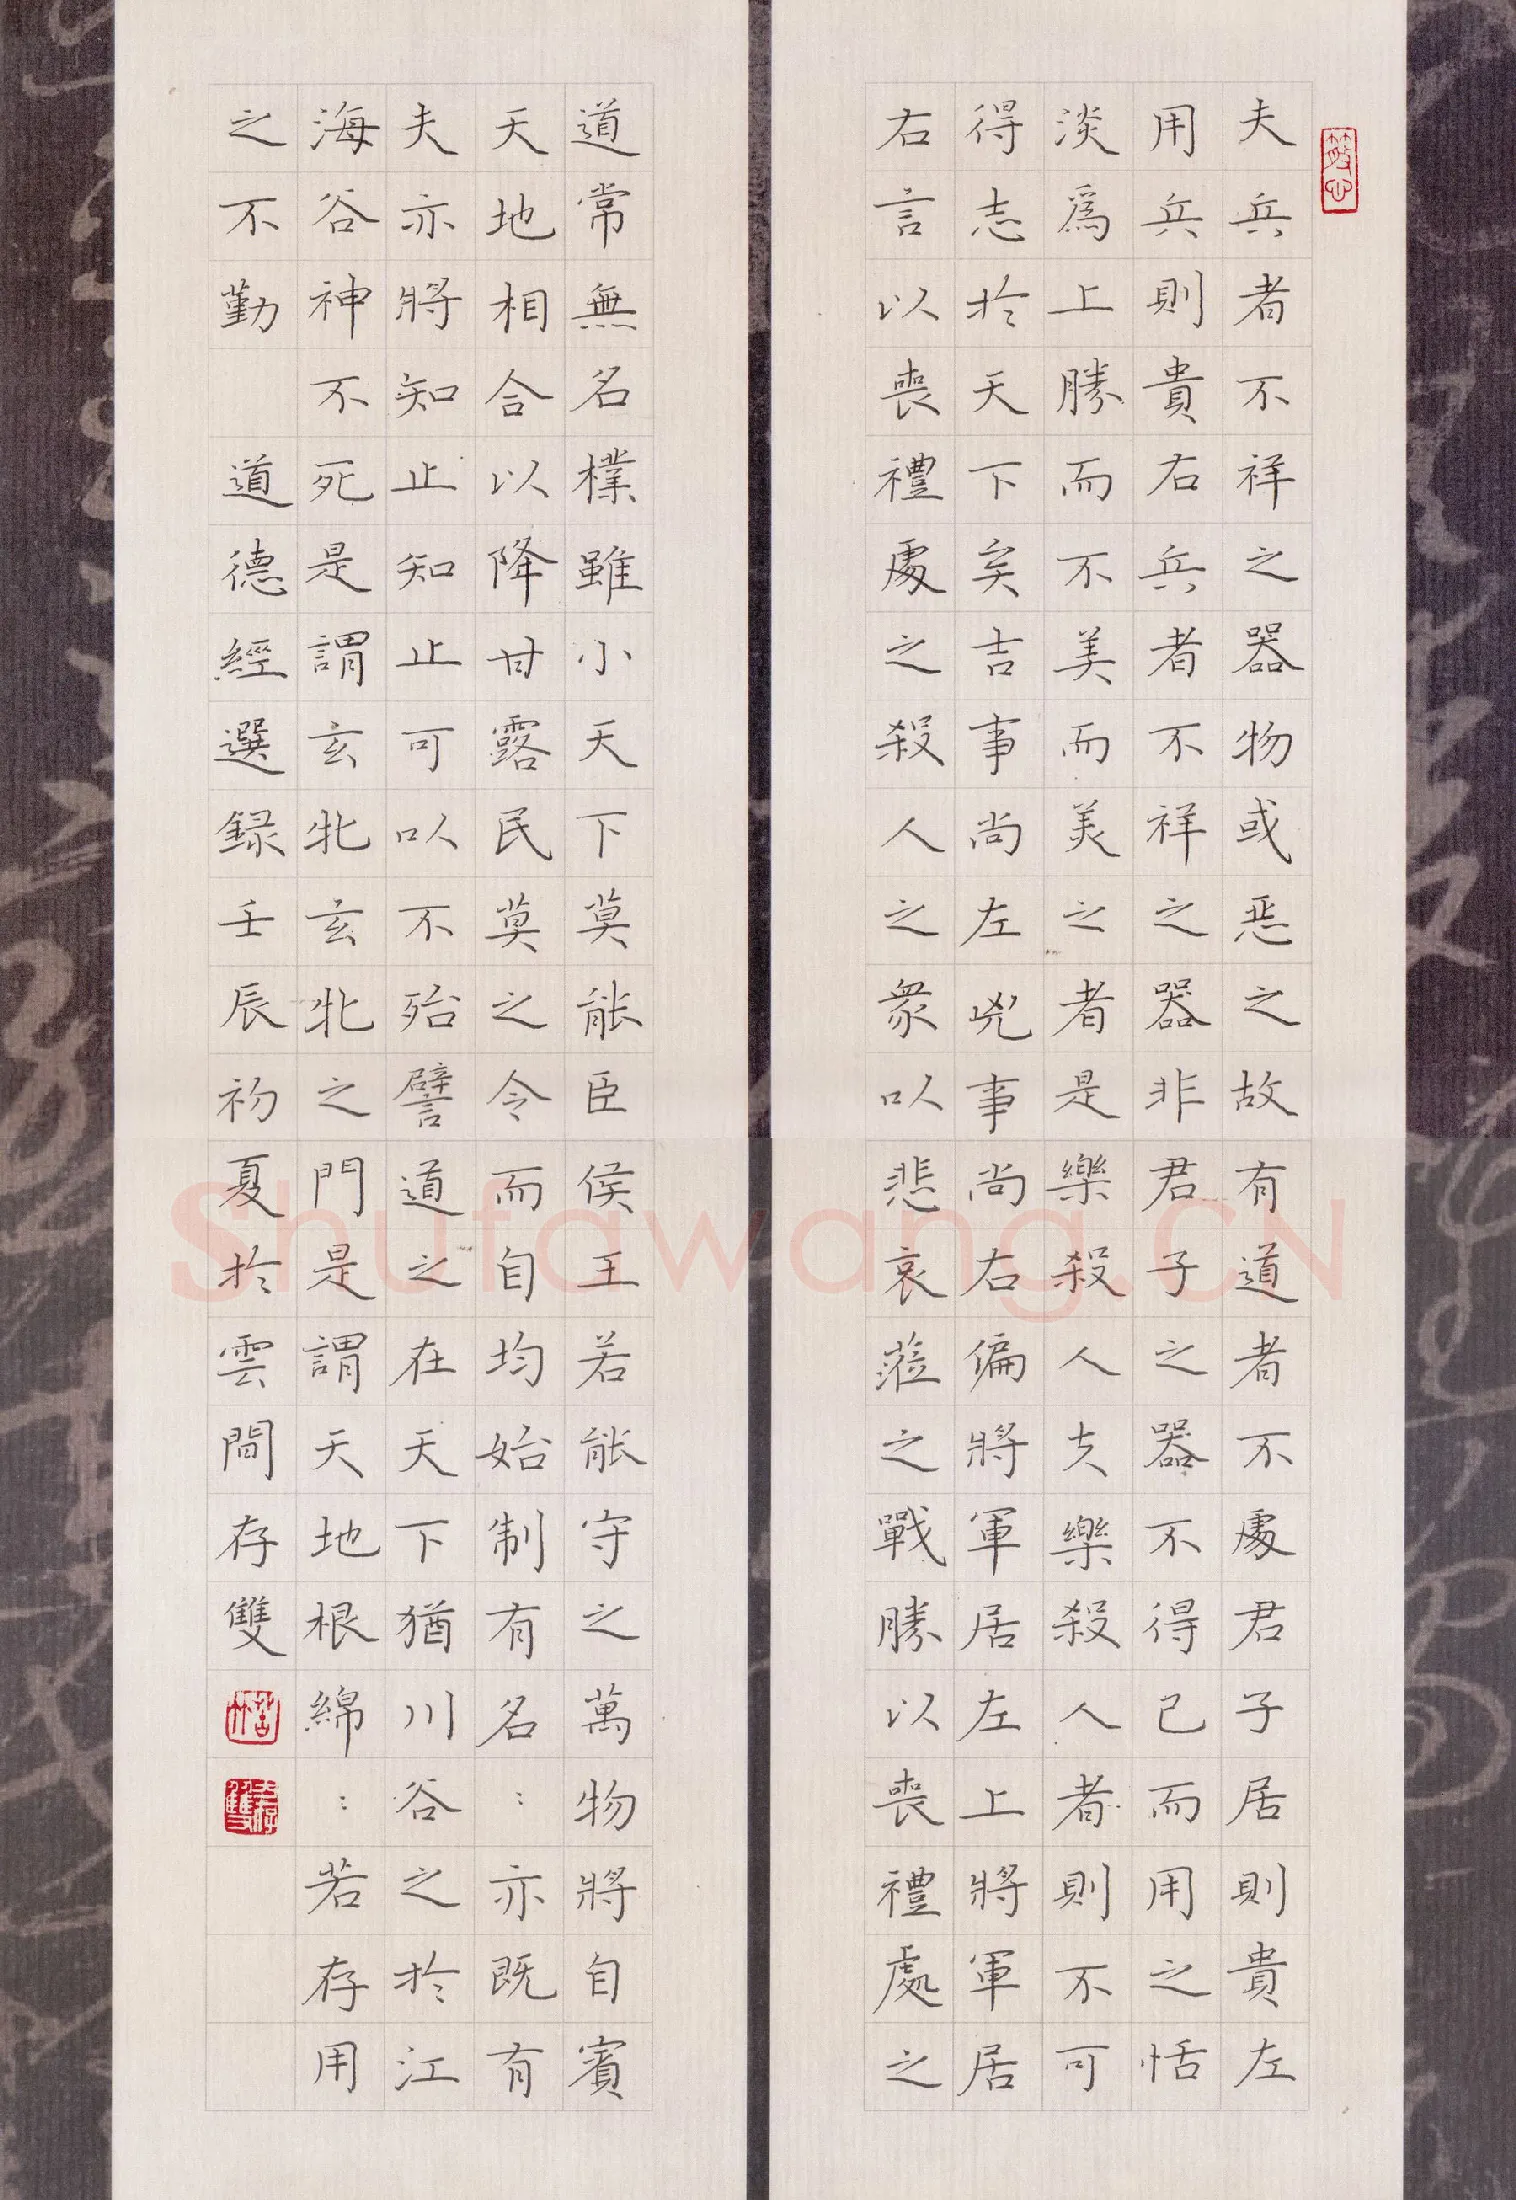 夫兵者不祥之器物或恶之故有道者不處君子居則貴左
用兵則貴右兵者不祥之器非君子之器不得已而用之恬
淡爲上勝而不美而美之者是樂殺人夫樂殺人者則不可
得志於天下矣吉事尚左兇事尚右偏將軍居左上將軍居
右言以喪禮處之殺人之衆以悲哀蒞之戰勝以喪禮處之
道常無名樸雖小天下莫能臣侯王若能守之萬物將自賓
天地相合以降甘露民莫之令而自均始制有名：亦既有
夫亦將知止知止可以不殆譬道之在天下猶川谷之於江
海谷神不死是謂玄牝玄牝之門是謂天地根綿：若存用
之不勤 道德經選録壬辰初夏於雲間存雙
Shufawang.CN